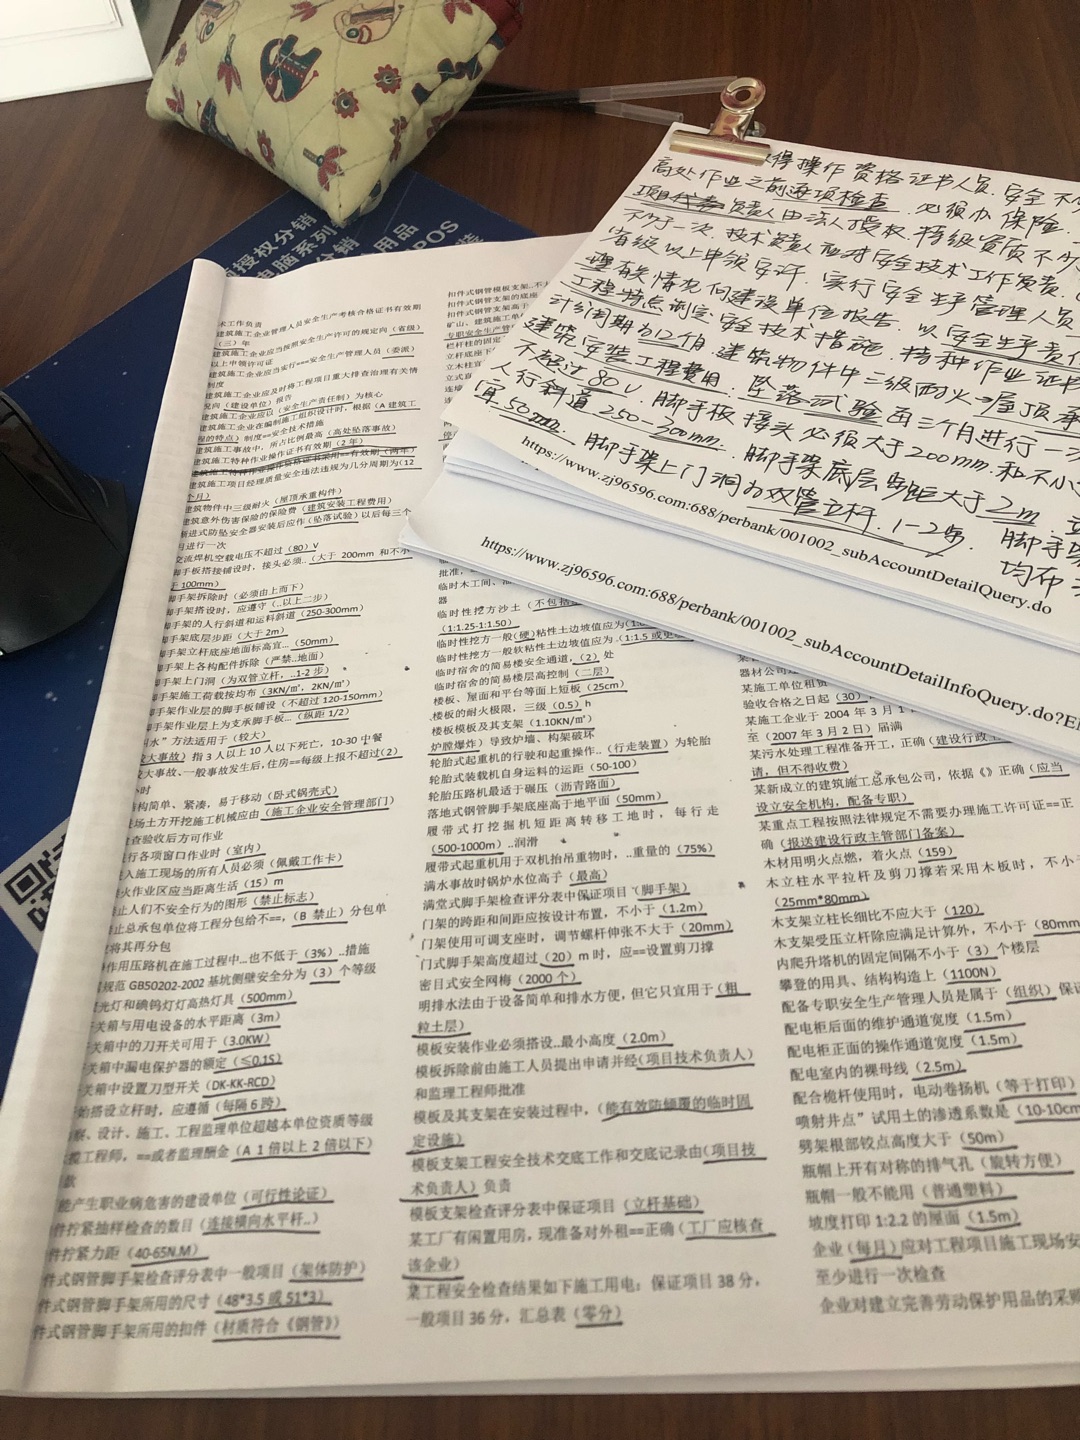 授权分销
电脑系列
分销
用品
POS
得操作资格证书人员.安全不
高处作业之前逐项检查.必须办保险.
负责人由法人授权.特级资质不
不少于一次.技术负责人应对安全技术工作负责.
省级以上申领安许.实行安全生产管理人员
有关情况向建设单位报告.以安全生产责任
工程特点制定安全技术措施.特种作业证书
计分周期为12个月 建筑物件中三级耐火→屋顶承
建筑安装工程费用.坠落试验每三个月进行一次
不超过80V.脚手板接头必须大于200mm.和不小
人行斜道250-300mm.脚手架底层步距大于2m.
宜50mm.脚手架上门洞为双管立杆.1-2步.
均布
https://www.zj96596.com:688/perbank/001002_subAccountDetailQuery.do
https://www.zj96596.com:688/perbank/001002_subAccountDetailInfoQuery.do?E
术工作负责
建筑施工企业管理人员安全生产考核合格证书有效期
(三)年
建筑施工企业应当按照安全生产许可的规定向(省级)
以上申领许可证
建筑施工企业应当实行==安全生产管理人员(委派)
制度
建筑施工企业应及时将工程项目重大排查治理有关情
况向(建设单位)报告
建筑施工企业应以(安全生产责任制)为核心
建筑施工企业在编制施工组织设计时,根据(A 建筑工
程的特点)制度==安全技术措施
建筑施工事故中,所占比例最高(高处坠落事故)
建筑施工特种作业操作证书有效期(2年)
建筑施工特种作业操作资格证书采用==有效期(两年)
建筑施工项目经理质量安全违法违规为几分周期为(12
个月)
建筑物件中三级耐火(屋顶承重构件)
建筑意外伤害保险的保险费(建筑安装工程费用)
渐进式防坠安全器安装后应作(坠落试验)以后每三个
月进行一次
交流焊机空载电压不超过(80)V
脚手板搭接铺设时,接头必须..(大于 200mm 和不小
于100mm)
脚手架拆除时(必须由上而下)
脚手架搭设时,应遵守(..以上二步)
脚手架的人行斜道和运料斜道(250-300mm)
脚手架底层步距(大于2m)
脚手架立杆底座地面标高宜...(50mm)
脚手架上各构配件拆除(严禁..地面)
脚手架上门洞(为双管立杆,..1-2步)
脚手架施工荷载按均布(3KN/㎡,2KN/㎡)
脚手架作业层的脚手板铺设(不超过120-150mm)
脚手架作业层上为支承脚手板...(纵距1/2)
水”方法适用于(较大)
较大事故)指3人以上10人以下死亡,10-30中餐
较大事故、一般事故发生后,住房==每级上报不超过(2)
小时
结构简单、紧凑,易于移动(卧式锅壳式)
现场土方开挖施工机械应由(施工企业安全管理部门)
检查验收后方可作业
进行各项窗口作业时(室内)
进入施工现场的所有人员必须(佩戴工作卡)
火作业区应当距离生活(15)m
禁止人们不安全行为的图形(禁止标志)
禁止总承包单位将工程分包给不==,(B 禁止)分包单
位将其再分包
作用压路机在施工过程中...也不低于(3%)..措施
规范 GB50202-2002 基坑侧壁安全分为(3)个等级
光灯和碘钨灯灯高热灯具(500mm)
开关箱与用电设备的水平距离(3m)
开关箱中的刀开关可用于(3.0KW)
开关箱中漏电保护器的额定(≤0.1S)
开关箱中设置刀型开关(DK-KK-RCD)
始搭设立杆时,应遵循(每隔6跨)
勘察、设计、施工、工程监理单位超越本单位资质等级
工程师,==或者监理酬金(A 1倍以上2倍以下)
款
能产生职业病危害的建设单位(可行性论证)
件拧紧抽样检查的数目(连接横向水平杆..)
件拧紧力距(40-65N.M)
件式钢管脚手架检查评分表中一般项目(架体防护)
件式钢管脚手架所用的尺寸(48*3.5 或 51*3)
件式钢管脚手架所用的扣件(材质符合《钢管》)
扣件式钢管模板支架..不
扣件式钢管支架的底座
扣件式钢管支架高于
矿山、建筑施工单
专职安全生产管
栏杆柱的固定
立杆底座下
立木柱宜
批准,
临时木工间、油
器
临时性挖方沙土(不包括
(1:1.25-1:1.50)
临时性挖方一般(硬)粘性土边坡值应为(1:0.
临时性挖方一般软粘性土边坡值应为.(1:1.5 或更
临时宿舍的简易楼安全通道,(2)处
临时宿舍的简易楼层高控制(二层)
楼板、屋面和平台等面上短板(25cm)
楼板的耐火极限,三级(0.5)h
楼板模板及其支架(1.10KN/㎡)
炉膛爆炸)导致炉墙、构架破坏
轮胎式起重机的行驶和起重操作..(行走装置)为轮胎
轮胎式装载机自身运料的运距(50-100)
轮胎压路机最适于碾压(沥青路面)
落地式钢管脚手架底座高于地平面(50mm)
履带式打挖掘机短距离转移工地时,每行走
(500-1000m)..润滑
履带式起重机用于双机抬吊重物时,..重量的(75%)
满水事故时锅炉水位高于(最高)
满堂式脚手架检查评分表中保证项目(脚手架)
门架的跨距和间距应按设计布置,不小于(1.2m)
门架使用可调支座时,调节螺杆伸张不大于(20mm)
门式脚手架高度超过(20)m时,应==设置剪刀撑
密目式安全网梅(2000个)
明排水法由于设备简单和排水方便,但它只宜用于(粗
粒土层)
模板安装作业必须搭设..最小高度(2.0m)
模板拆除前由施工人员提出申请并经(项目技术负责人)
和监理工程师批准
模板及其支架在安装过程中,(能有效防倾覆的临时固
定设施)
模板支架工程安全技术交底工作和交底记录由(项目技
术负责人)负责
模板支架检查评分表中保证项目(立杆基础)
某工厂有闲置用房,现准备对外租==正确(工厂应核查
该企业)
某工程安全检查结果如下施工用电:保证项目38分,
一般项目36分,汇总表(零分)
器材公司
某施工单位租赁
验收合格之日起(30)
某施工企业于 2004 年 3 月 1
至(2007年3月2日)届满
某污水处理工程准备开工,正确(建设行政
请,但不得收费)
某新成立的建筑施工总承包公司,依据《》正确(应当
设立安全机构,配备专职)
某重点工程按照法律规定不需要办理施工许可证==正
确(报送建设行政主管部门备案)
木材用明火点燃,着火点(159)
木立柱水平拉杆及剪刀撑若采用木板时,不小于
(25mm*80mm)
木支架立柱长细比不应大于(120)
木支架受压立杆除应满足计算外,不小于(80mm
内爬升塔机的固定间隔不小于(3)个楼层
攀登的用具、结构构造上(1100N)
配备专职安全生产管理人员是属于(组织)保证
配电柜后面的维护通道宽度(1.5m)
配电柜正面的操作通道宽度(1.5m)
配电室内的裸母线(2.5m)
配合桅杆使用时,电动卷扬机(等于打印)
喷射井点”试用土的渗透系数是(10-10cm
劈架根部铰点高度大于(50m)
瓶帽上开有对称的排气孔(旋转方便)
瓶帽一般不能用(普通塑料)
坡度打印1:2.2的屋面(1.5m)
企业(每月)应对工程项目施工现场安
至少进行一次检查
企业对建立完善劳动保护用品的采购